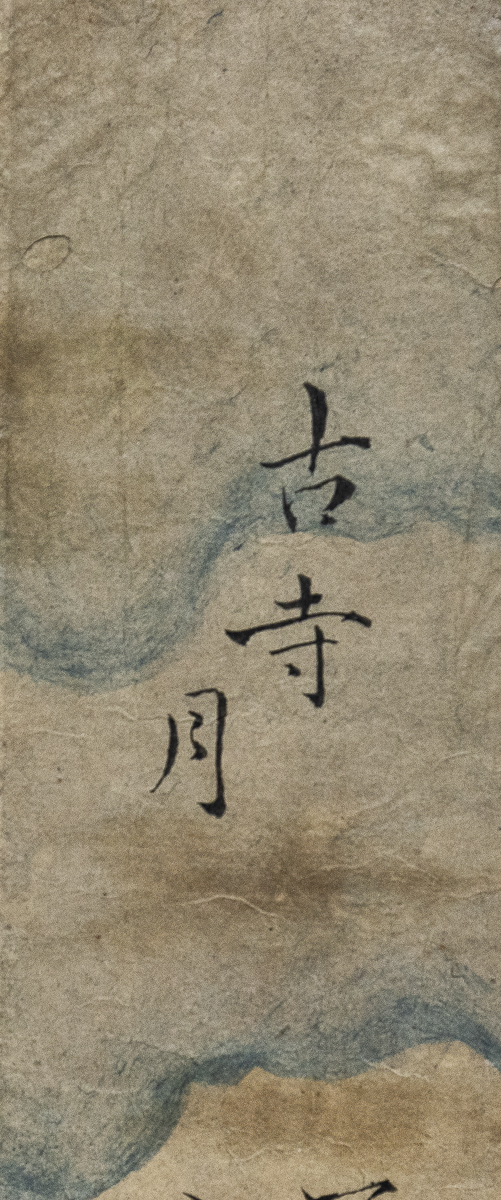 古寺
月